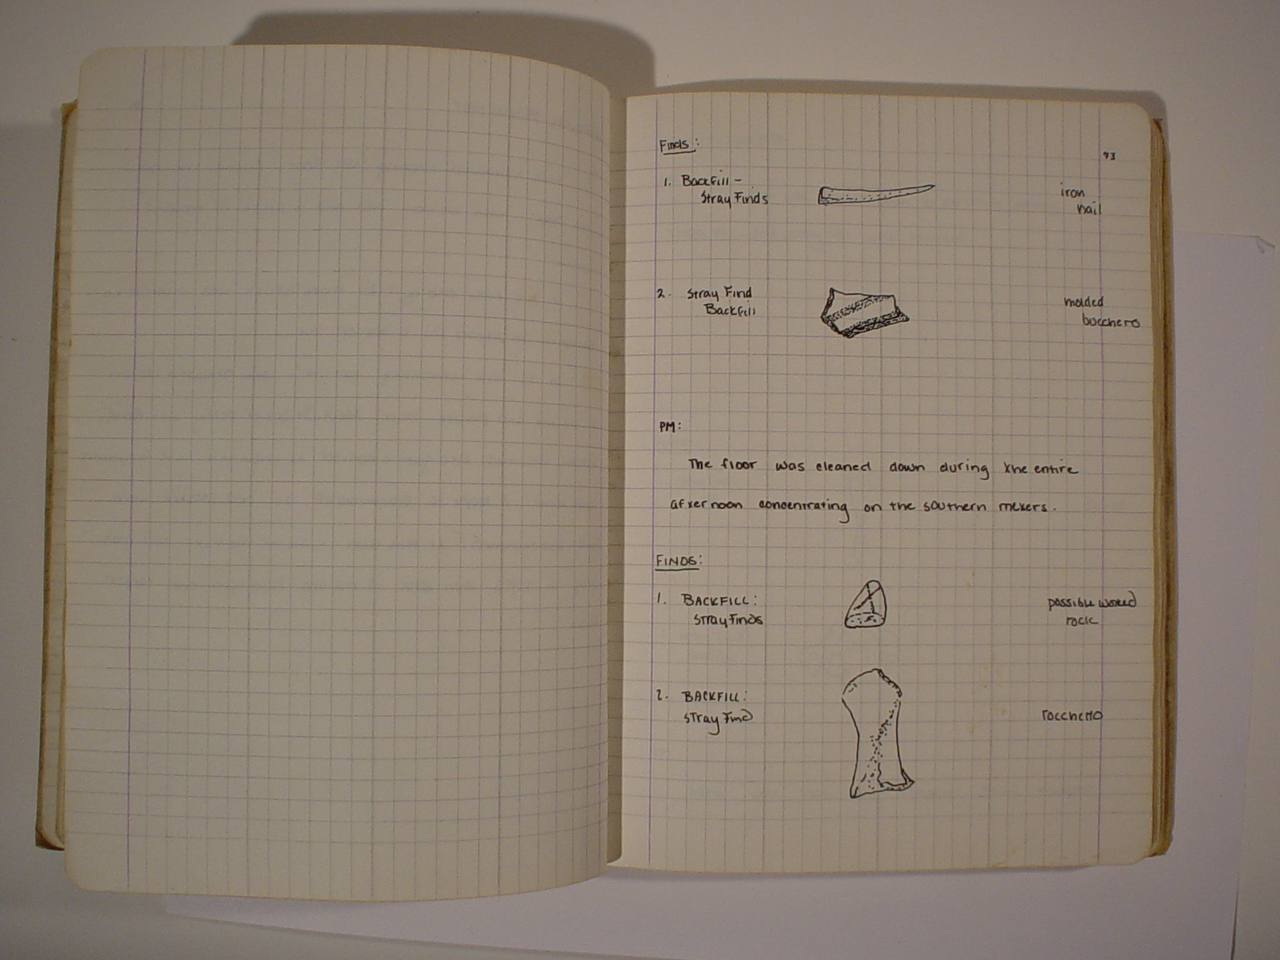 Finds:
73
1. Backfill - iron
Stray Finds nail
2. Stray Find molded
Backfill bucchero
PM:
The floor was cleaned down during the entire
afternoon concentrating on the southern meters.
FINDS:
1. BACKFILL: possible worked
Stray Finds rock
2. BACKFILL:
Stray Find rocchetto